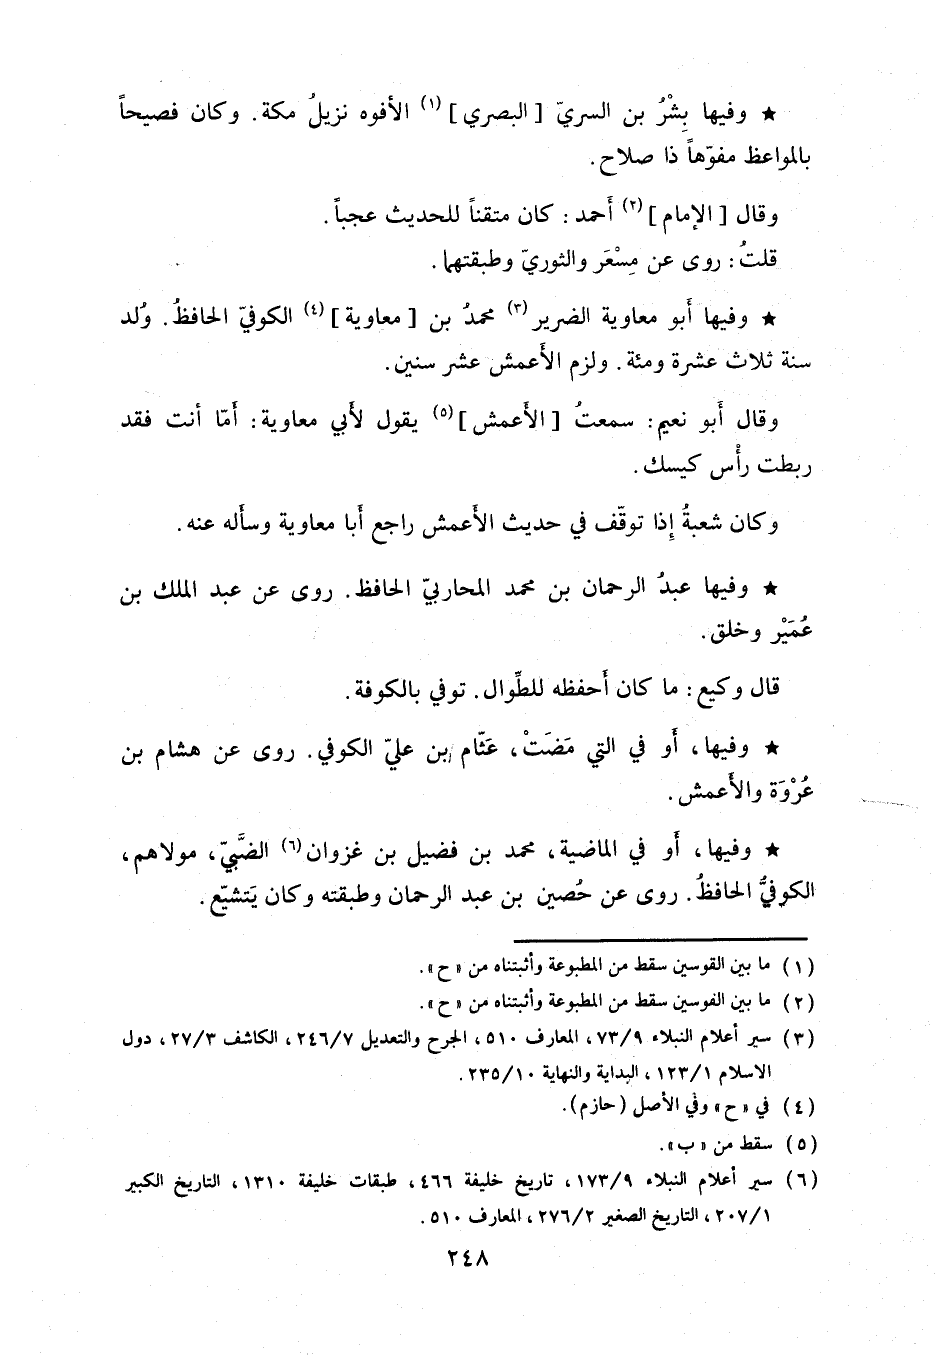 ★ وفيها بِشْرُ بن السريّ [ البصري ] (١) الأفوه نزيلُ مكة. وكان فصيحاً
بالمواعظ مفوّهاً ذا صلاح.
وقال [ الإمام ] (٢) أحمد : كان متقناً للحديث عجباً.
قلتُ : روى عن مِسْعَر والثوريّ وطبقتهما.
★ وفيها أبو معاوية الضرير (٣) محمدُ بن [ معاوية ] (٤) الكوفيّ الحافظُ. وُلد
سنة ثلاث عشرة ومئة. ولزم الأعمش عشر سنين.
وقال أبو نعيم : سمعتُ [ الأعمش ] (٥) يقول لأبي معاوية : أمّا أنت فقد
ربطت رأْس كيسك.
وكان شعبةُ إذا توقّف في حديث الأعمش راجع أبا معاوية وسأله عنه.
★ وفيها عبدُ الرحمان بن محمد المحاربيّ الحافظ. روى عن عبد الملك بن
عُمَيْر وخلق.
قال وكيع : ما كان أحفظه للطِّوال. توفي بالكوفة.
★ وفيها، أو في التي مَضَتْ، عَثّام بن عليّ الكوفي. روى عن هشام بن
عُرْوَة والأعمش.
★ وفيها، أو في الماضية، محمد بن فضيل بن غزوان (٦) الضَّبيّ، مولاهم،
الكوفيُّ الحافظُ. روى عن حُصين بن عبد الرحمان وطبقته وكان يَتشيّع.
(١) ما بين القوسين سقط من المطبوعة وأثبتناه من « ح ».
(٢) ما بين القوسين سقط من المطبوعة وأثبتناه من « ح ».
(٣) سير أعلام النبلاء ٧٣/٩، المعارف ٥١٠، الجرح والتعديل ٢٤٦/٧، الكاشف ٢٧/٣، دول
الاسلام ١٢٣/١، البداية والنهاية ٢٣٥/١٠.
(٤) في « ح » وفي الأصل (حازم).
(٥) سقط من « ب ».
(٦) سير أعلام النبلاء ١٧٣/٩، تاريخ خليفة ٤٦٦، طبقات خليفة ١٣١٠، التاريخ الكبير
٢٠٧/١، التاريخ الصغير ٢٧٦/٢، المعارف ٥١٠.
٢٤٨